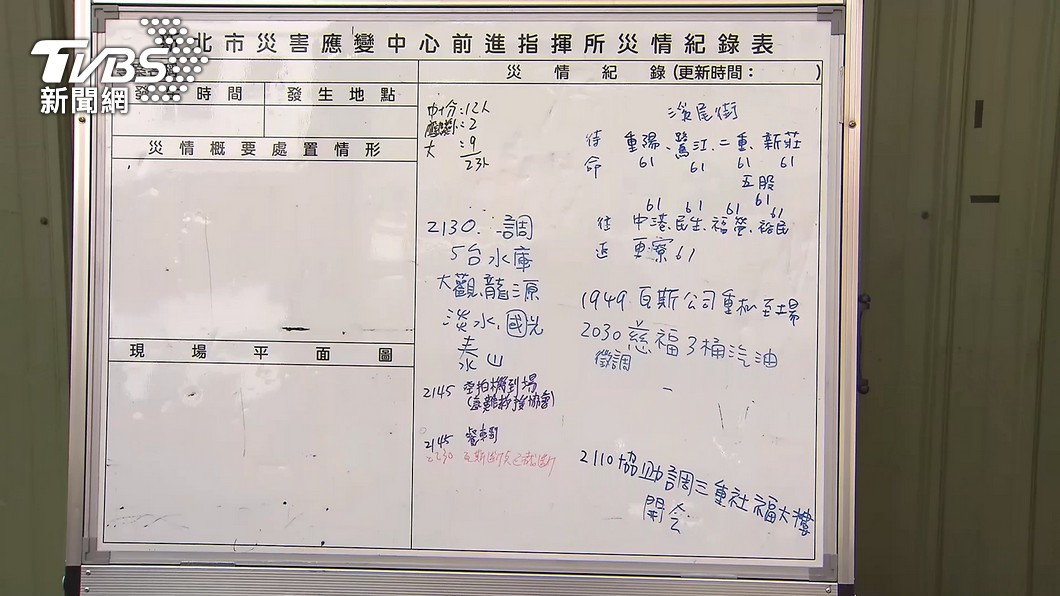 TVBS
新聞網
北市災害應變中心前進指揮所災情紀錄表
發生時間
發生地點
災情概要處置情形
現場平面圖
災情紀錄(更新時間: )
中分:12人
:2
大 :9
23人
2130. 調
5台水庫
大觀.龍源
淡水.國光
泰山
2145 空拍機到場
2145
2230 瓦斯 已截斷
淡尾街
待命 重陽、鷺江、二重、新莊
61 61 61 61
五股
61
61 61 61 61
往返 中港、民生、福營、裕民
更寮61
1949.瓦斯公司重和至場
2030慈福3桶汽油
徵調
2110協助調三重社福大樓
開会